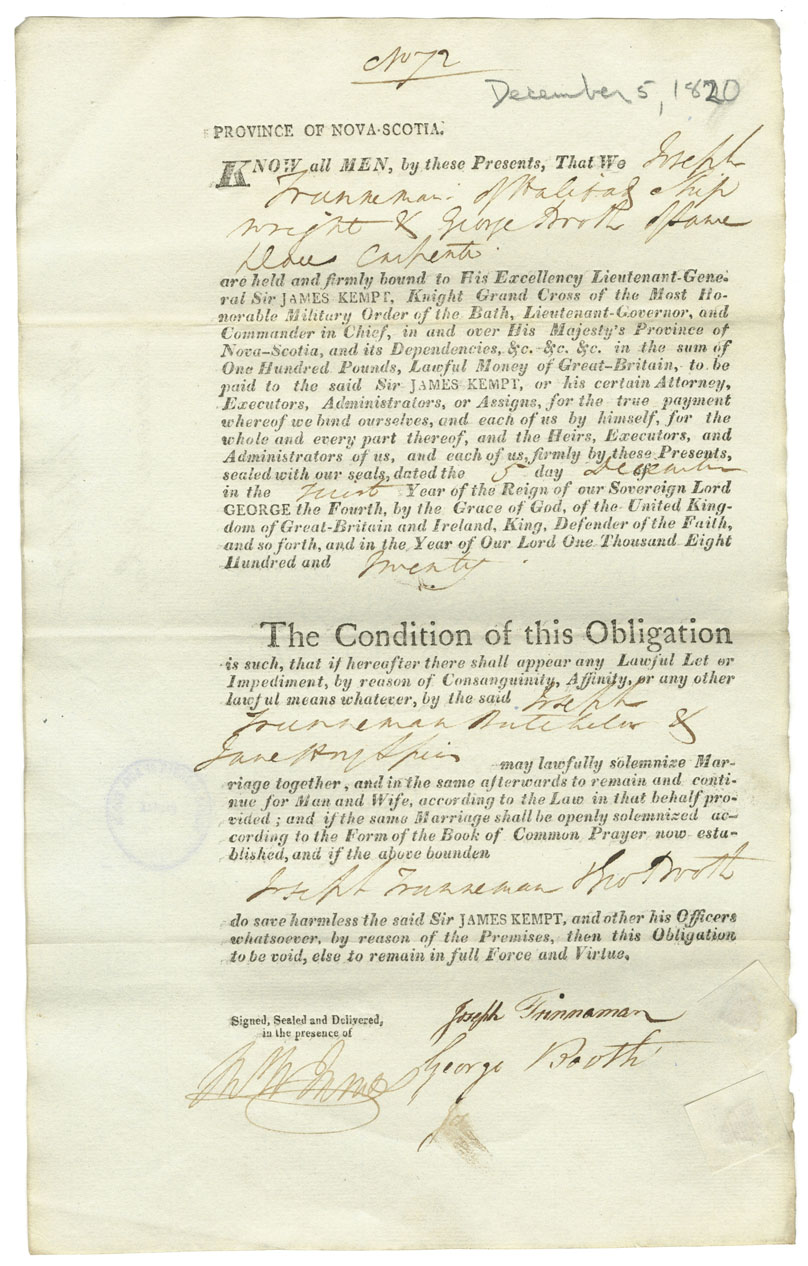 No 72
December 5, 1820
PROVINCE OF NOVA-SCOTIA.
KNOW all MEN, by these Presents, That We Joseph
Trunneman of Halifax Ship
wright & George Booth of same
place Carpenter
are held and firmly bound to His Excellency Lieutenant-Gene-
ral Sir JAMES KEMPT, Knight Grand Cross of the Most Ho-
norable Military Order of the Bath, Lieutenant-Governor, and
Commander in Chief, in and over His Majesty's Province of
Nova-Scotia, and its Dependencies, &c. &c. &c. in the sum of
One Hundred Pounds, Lawful Money of Great-Britain, to be
paid to the said Sir JAMES KEMPT, or his certain Attorney,
Executors, Administrators, or Assigns, for the true payment
whereof we bind ourselves, and each of us by himself, for the
whole and every part thereof, and the Heirs, Executors, and
Administrators of us, and each of us, firmly by these Presents,
sealed with our seals, dated the 5 day of December
in the first Year of the Reign of our Sovereign Lord
GEORGE the Fourth, by the Grace of God, of the United King-
dom of Great-Britain and Ireland, King, Defender of the Faith,
and so forth, and in the Year of Our Lord One Thousand Eight
Hundred and Twenty.
The Condition of this Obligation
is such, that if hereafter there shall appear any Lawful Let or
Impediment, by reason of Consanguinity, Affinity, or any other
lawful means whatever, by the said Joseph
Trunneman Batchelor &
Jane
may lawfully solemnize Mar-
riage together, and in the same afterwards to remain and conti-
nue for Man and Wife, according to the Law in that behalf pro-
vided; and if the same Marriage shall be openly solemnized ac-
cording to the Form of the Book of Common Prayer now esta-
blished, and if the above bounden
Joseph Trunneman Booth
do save harmless the said Sir JAMES KEMPT, and other his Officers
whatsoever, by reason of the Premises, then this Obligation
to be void, else to remain in full Force and Virtue.
Signed, Sealed and Delivered,
in the presence of
Joseph Trinnaman
George Booth